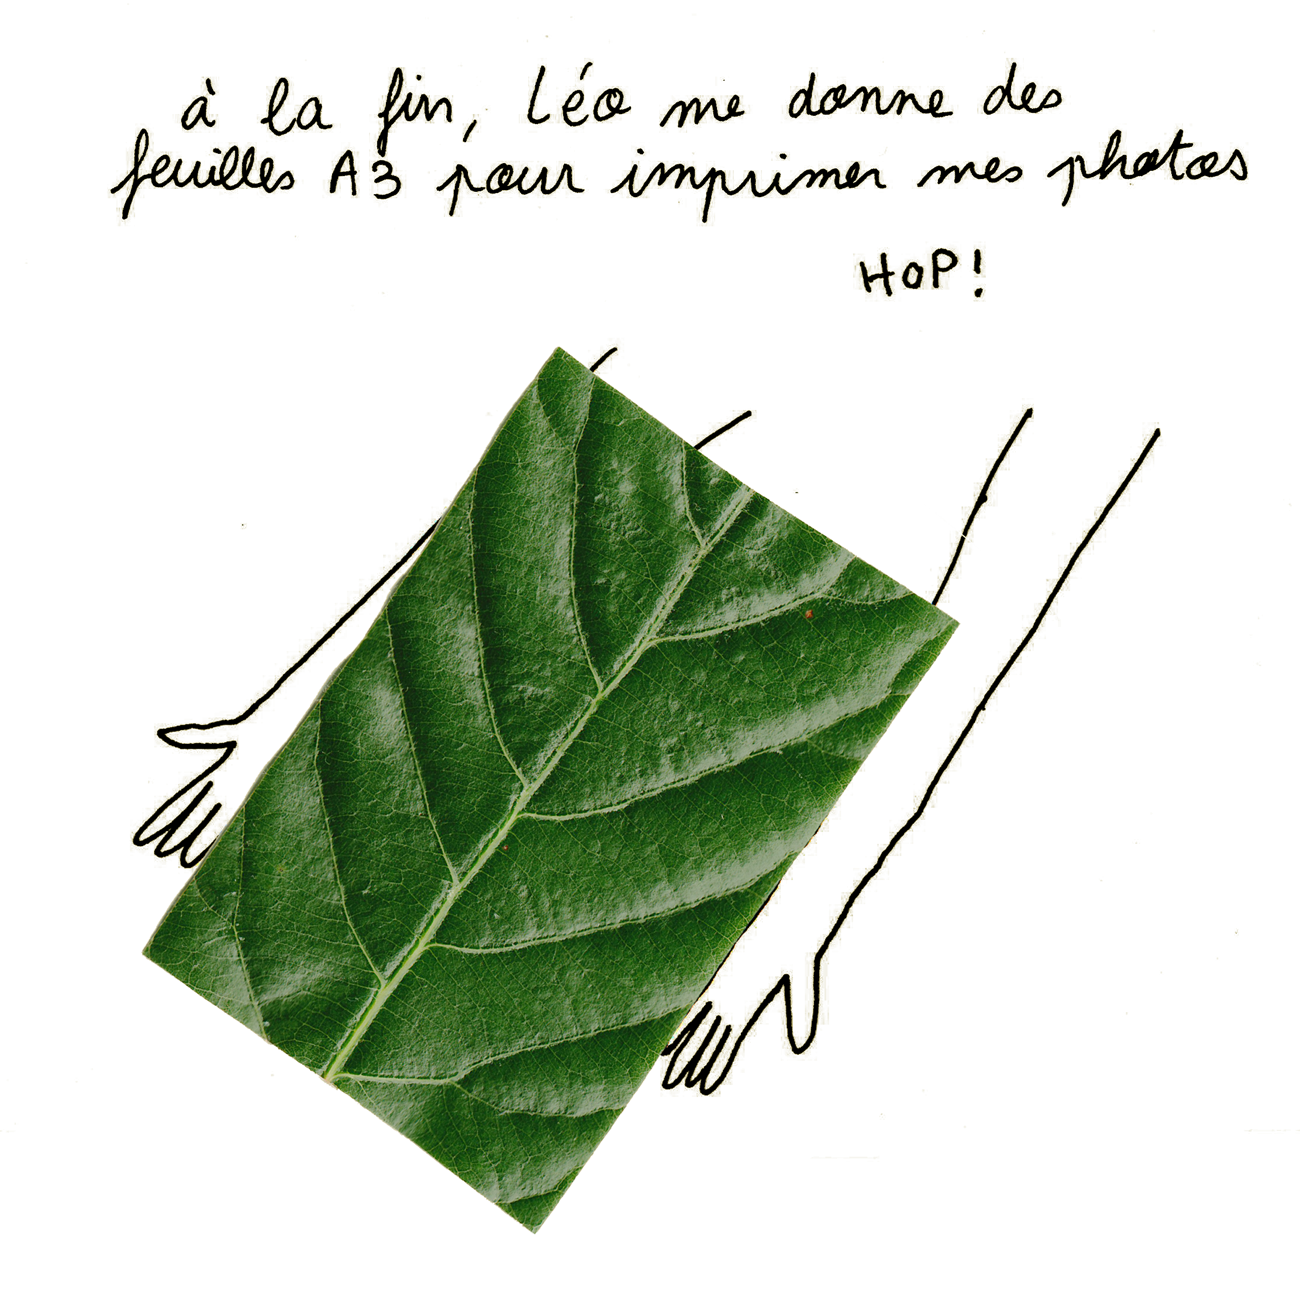 à la fin, Léo me donne des
feuilles A3 pour imprimer mes photos
HOP!